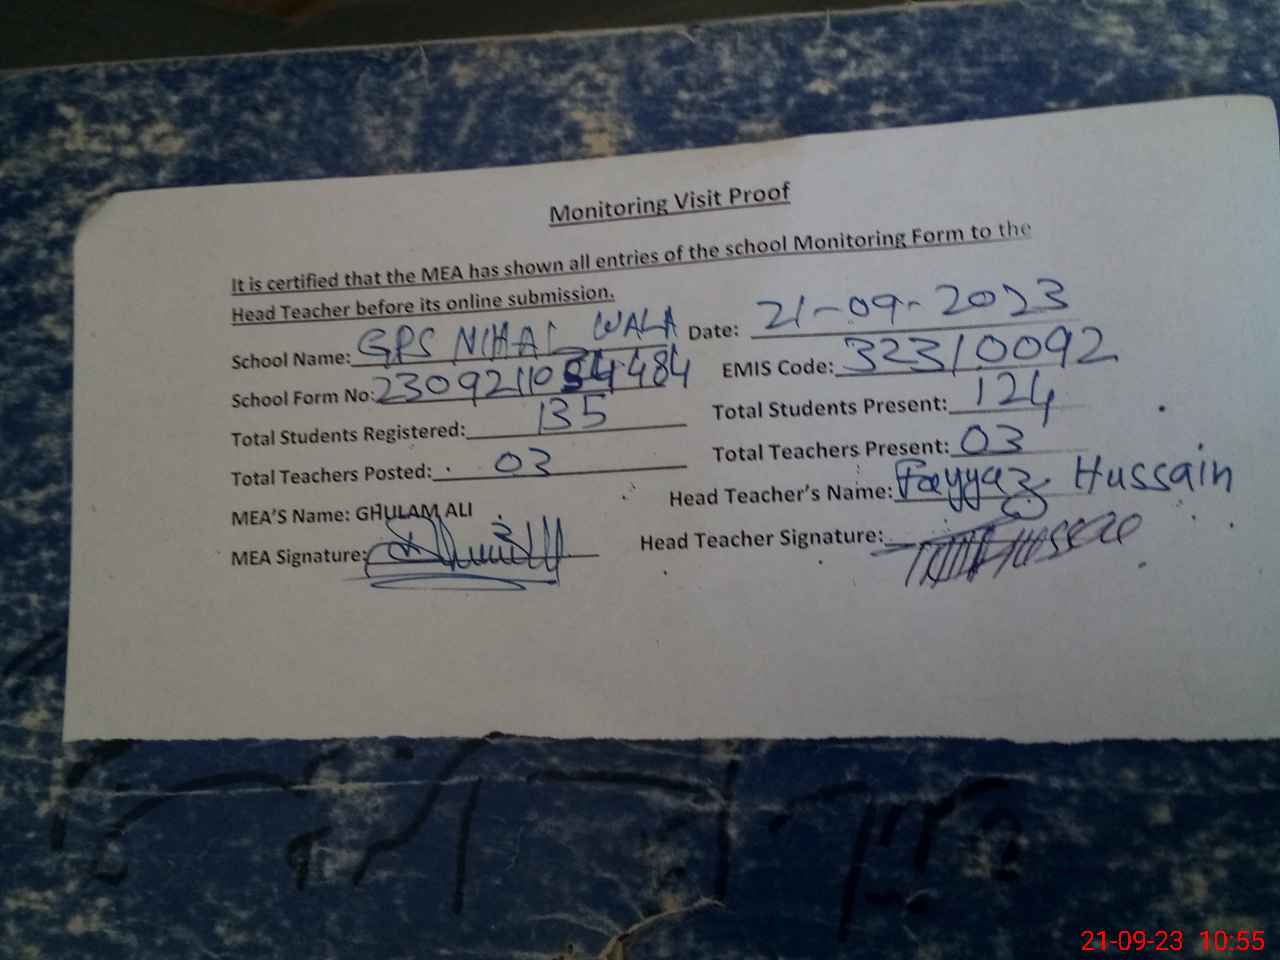 Monitoring Visit Proof
It is certified that the MEA has shown all entries of the school Monitoring Form to the
Head Teacher before its online submission.
School Name: GPS NIHAL WALA Date: 21-09-2023
School Form No: 23092110 484 EMIS Code: 32310092
Total Students Registered: 135 Total Students Present: 124
Total Teachers Posted: 03 Total Teachers Present: 03
MEA'S Name: GHULAM ALI Head Teacher's Name: Fayyaz Hussain
MEA Signature: Head Teacher Signature:
21-09-23 10:55